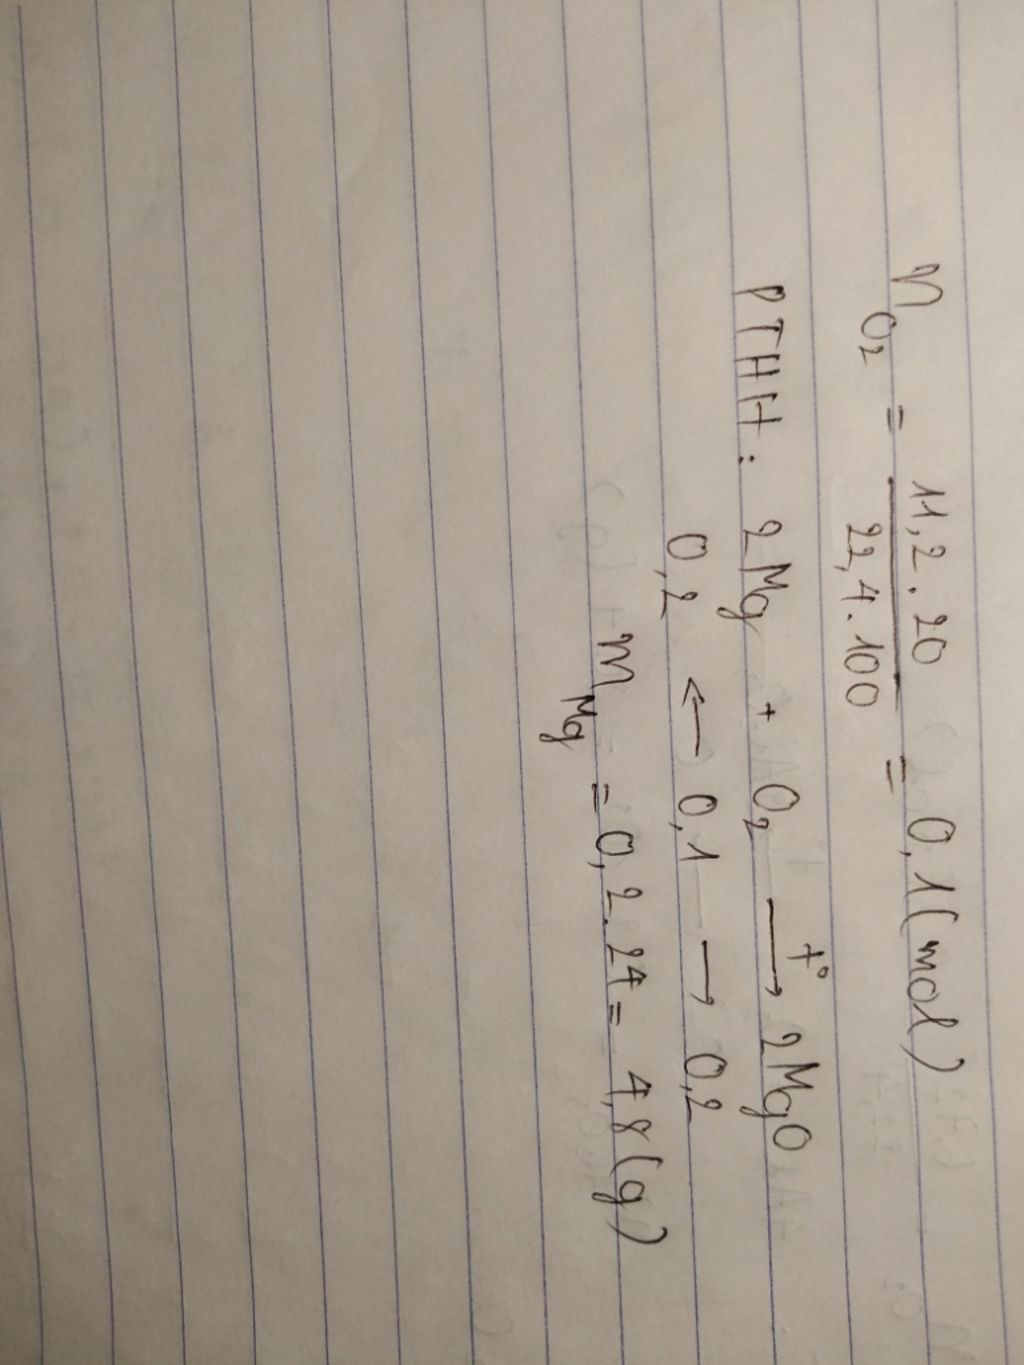 n O₂ = 11,2 . 20 / 22,4 . 100 = 0,1 (mol)
PTHH : 2Mg + O₂ —t°→ 2MgO
0,2 ← 0,1 → 0,2
m Mg = 0,2 . 24 = 4,8 (g)